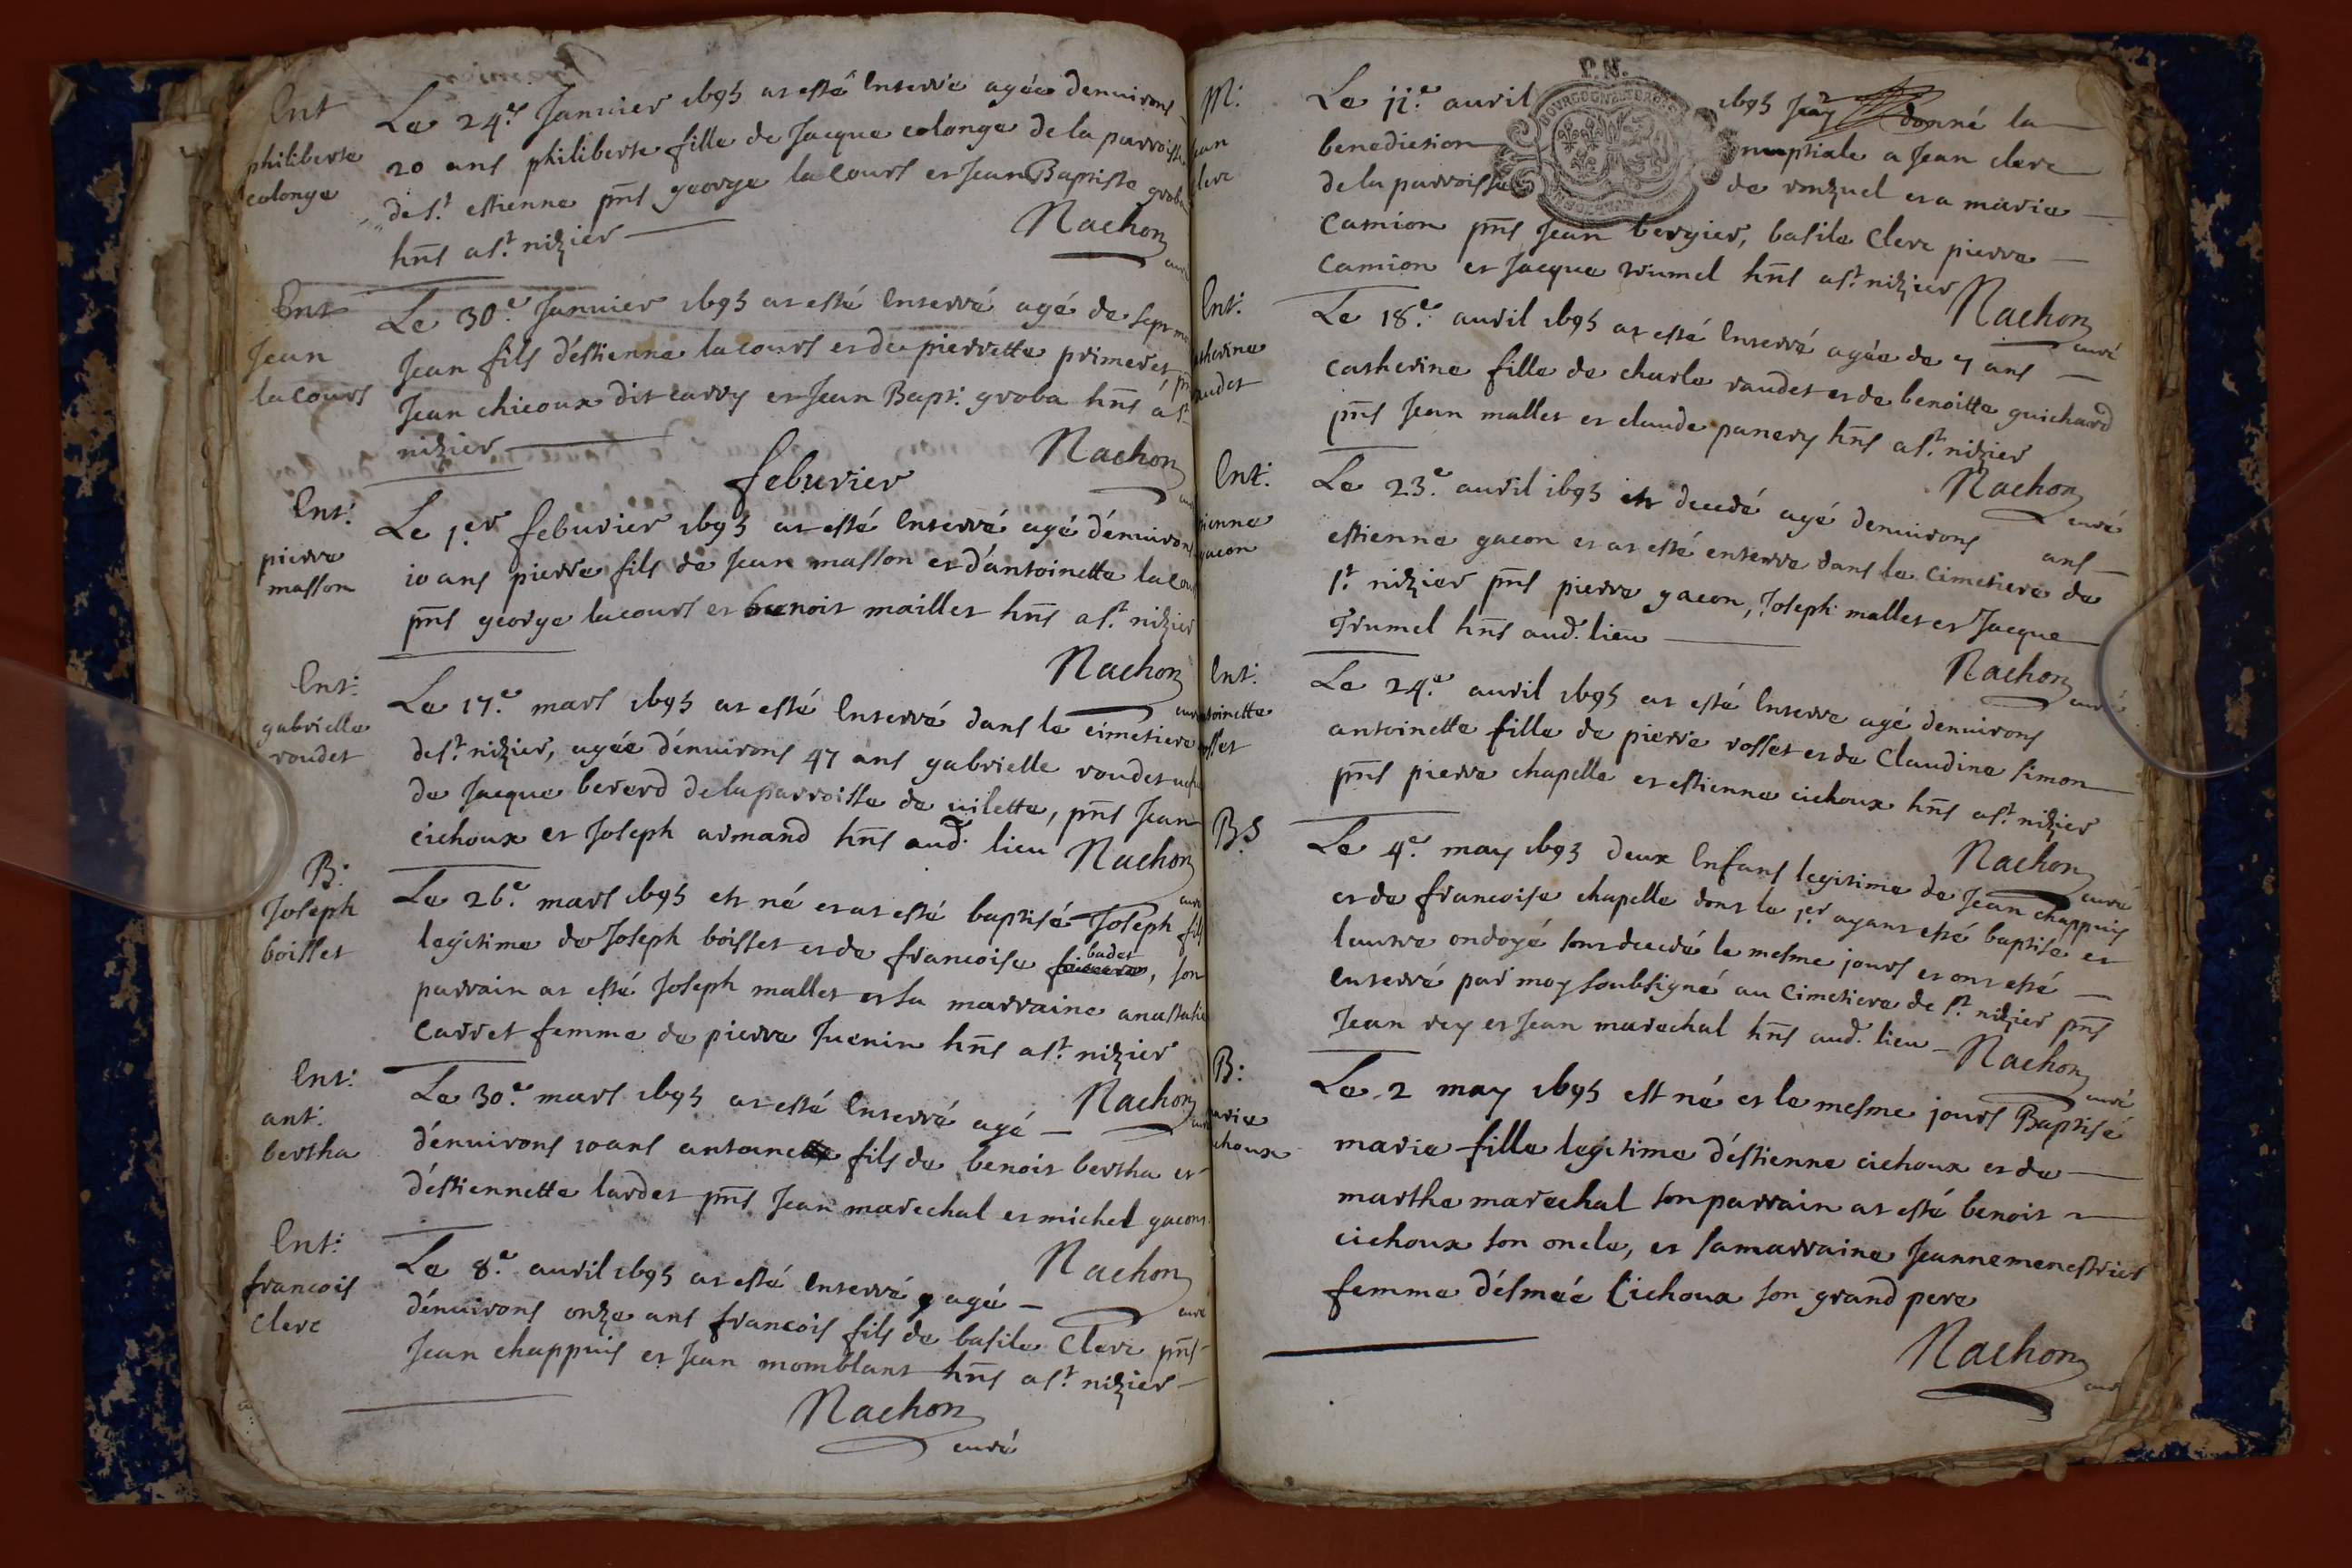 Ent
philiberte
colonge
Le 24.e Janvier 1695 at esté Enterré agée denvirons
20 ans philiberte fille de Jacque colonge de la parroisse
de st. estienne pnts george lacours et Jean Baptiste groba
hnts a st. nizier
Nachon
curé
Ent
Jean
lacours
Le 30.e Janvier 1695 at esté Enterré agé de sept
Jean fils d'estienne lacours et de pierrette primeret,
Jean chicoux dit carry et Jean Bapt: groba hnts a st
nizier
Nachon
feburier
Ent:
pierre
masson
Le 1.er feburier 1695 at esté Enterré agé d'environs
10 ans pierre fils de Jean masson et d'antoinette
pnts george lacours et benoit maillet hnts a st. nizier
Nachon
curé
Ent:
gabrielle
roudet
Le 17.e mars 1695 at esté Enterré dans le cimetiere
de st. nizier, agée d'environs 47 ans gabrielle roudet
de Jacque bererd de la parroisse de vilette, pnts Jean
cichoux et Joseph armand hnts aud. lieu
Nachon
curé
B:
Joseph
boisset
Le 26.e mars 1695 est né et at esté baptisé Joseph fils
legitime de Joseph boisset et de francoise badet, son
parrain at esté Joseph mallet et sa marraine anastasie
Carret femme de pierre Juenin hnts a st. nizier
Nachon
curé
Ent:
ant:
bertha
Le 30.e mars 1695 at esté Enterré agé
d'environs 10 ans antoine fils de benoit bertha et
d'estiennette lardet pnts Jean marechal et michel gacon
Nachon
curé
Ent:
francois
Clerc
Le 8.e avril 1695 at esté Enterré, agé
d'environs onze ans francois fils de basile Clerc pnts
Jean chappuis et Jean momblant hnts a st. nizier
Nachon
curé
P.N.
M:
Le 11.e avril 1695 Jay donné la
benediction nuptiale a Jean clerc
de la parroisse de ronzuel et a marie
Camion pnts Jean bergier, basile Clerc pierre
Camion et Jacque trumel hnts a st. nizier
Nachon
curé
Ent:
Le 18.e avril 1695 at esté Enterré agée de 7 ans
catherine fille de charle raudet et de benoitte guichard
pnts Jean mallet et claude panery hnts a st. nizier
Nachon
curé
Ent:
gacon
Le 23.e avril 1695 est decedé agé denvirons ans
estienne gacon et at esté enterre dans le Cimetiere de
st. nizier pnts pierre gacon, Joseph mallet et Jacque
Trumel hnts aud. lieu
Nachon
curé
Ent:
Le 24.e avril 1695 at esté Enterre agé denvirons
antoinette fille de pierre rosset et de Claudine simon
pnts pierre chapelle et estienne cichoux hnts a st. nizier
Nachon
curé
B.S
Le 4.e may 1695 deux Enfans legitime de Jean chappuis
et de francoise chapelle dont le 1er ayant esté baptisé et
lautre ondoyé sont decedé le mesme jours et ont esté
Enterré par moy soubsigné au Cimetiere de st. nizier pnts
Jean rey et Jean marechal hnts aud. lieu
Nachon
curé
B:
Le 2 may 1695 est né et le mesme jours Baptisé
marie fille legitime d'estienne cichoux et de
marthe marechal son parrain at esté benoit
cichoux son oncle, et sa marraine Jeanne menestrier
femme d'esmeé Cichoux son grand pere
Nachon
curé